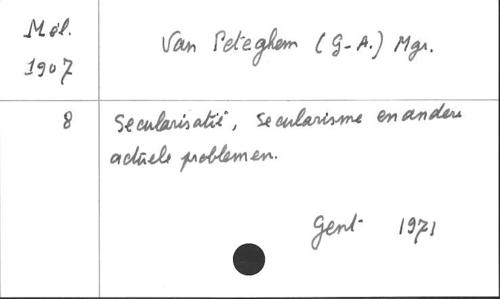 Mél. Van Peteghem (G-A.) Mgr.
1907
8 Secularisatie, secularisme en andere
actuele problemen.
Gent 1971